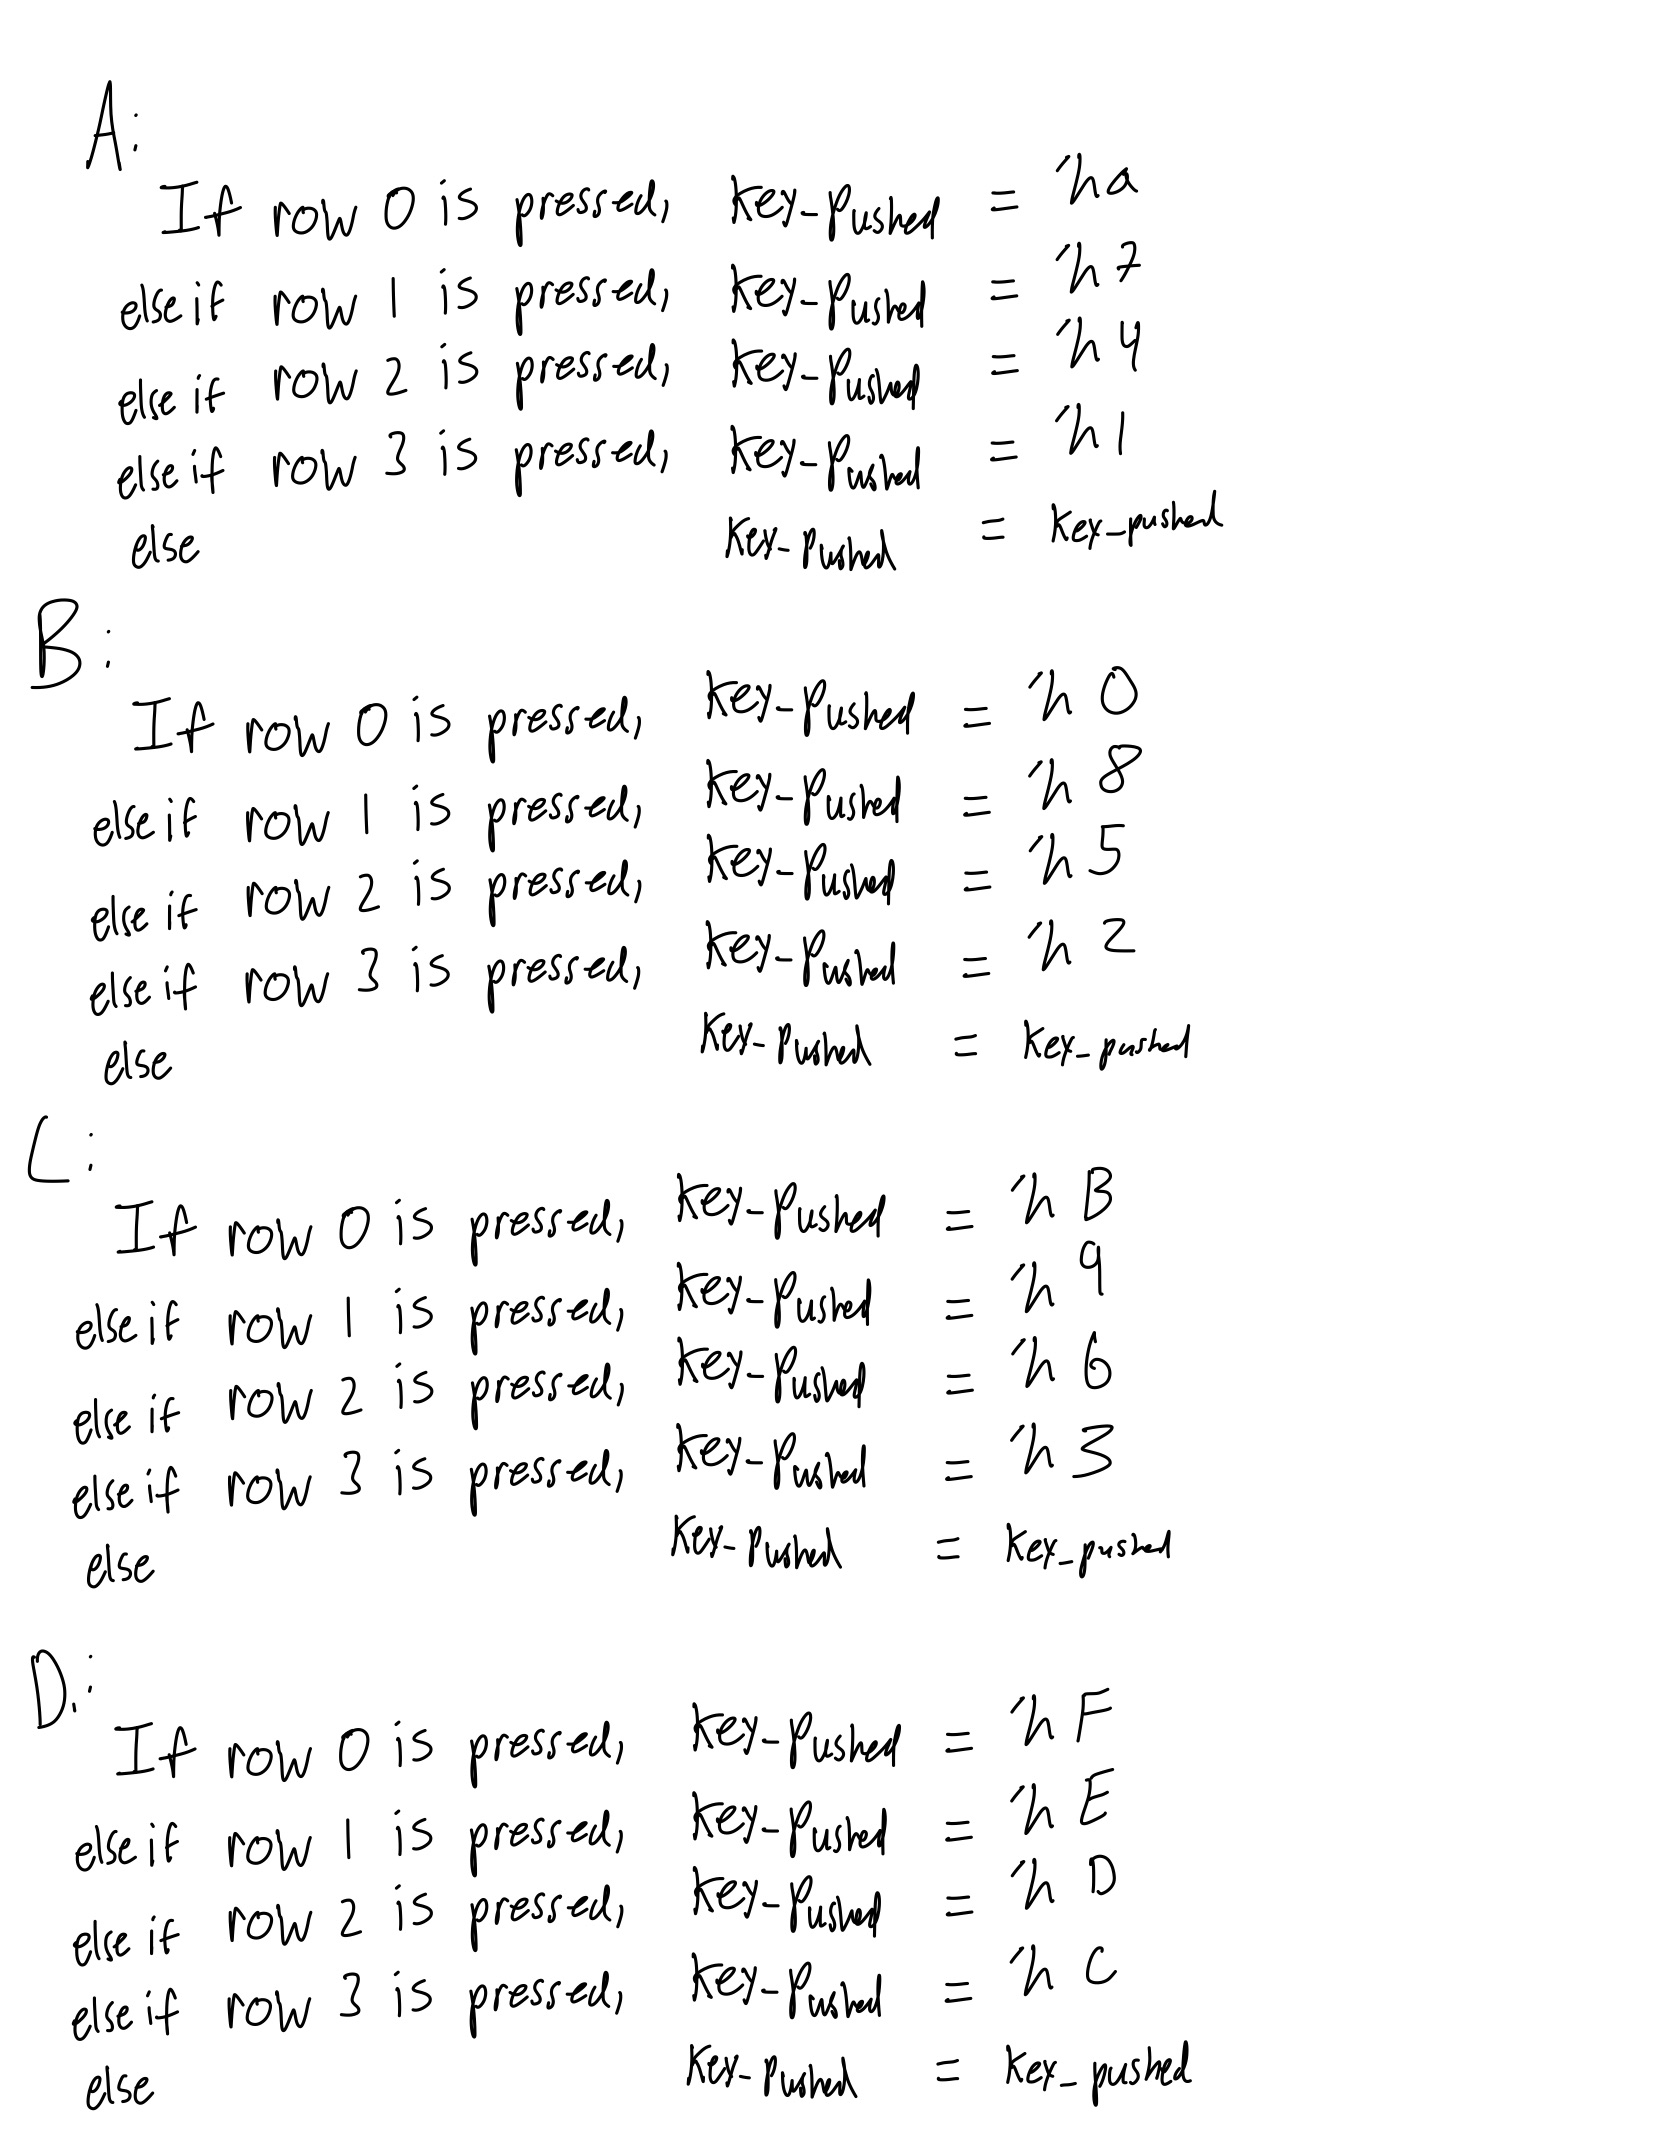 A:
If row 0 is pressed, key_pushed = 'ha
else if row 1 is pressed, key_pushed = 'h7
else if row 2 is pressed, key_pushed = 'h4
else if row 3 is pressed, key_pushed = 'h1
else key_pushed = key_pushed
B:
If row 0 is pressed, key_pushed = 'h0
else if row 1 is pressed, key_pushed = 'h8
else if row 2 is pressed, key_pushed = 'h5
else if row 3 is pressed, key_pushed = 'h2
else key_pushed = key_pushed
C:
If row 0 is pressed, key_pushed = 'hB
else if row 1 is pressed, key_pushed = 'h9
else if row 2 is pressed, key_pushed = 'h6
else if row 3 is pressed, key_pushed = 'h3
else key_pushed = key_pushed
D.:
If row 0 is pressed, key_pushed = 'hF
else if row 1 is pressed, key_pushed = 'hE
else if row 2 is pressed, key_pushed = 'hD
else if row 3 is pressed, key_pushed = 'hC
else key_pushed = key_pushed